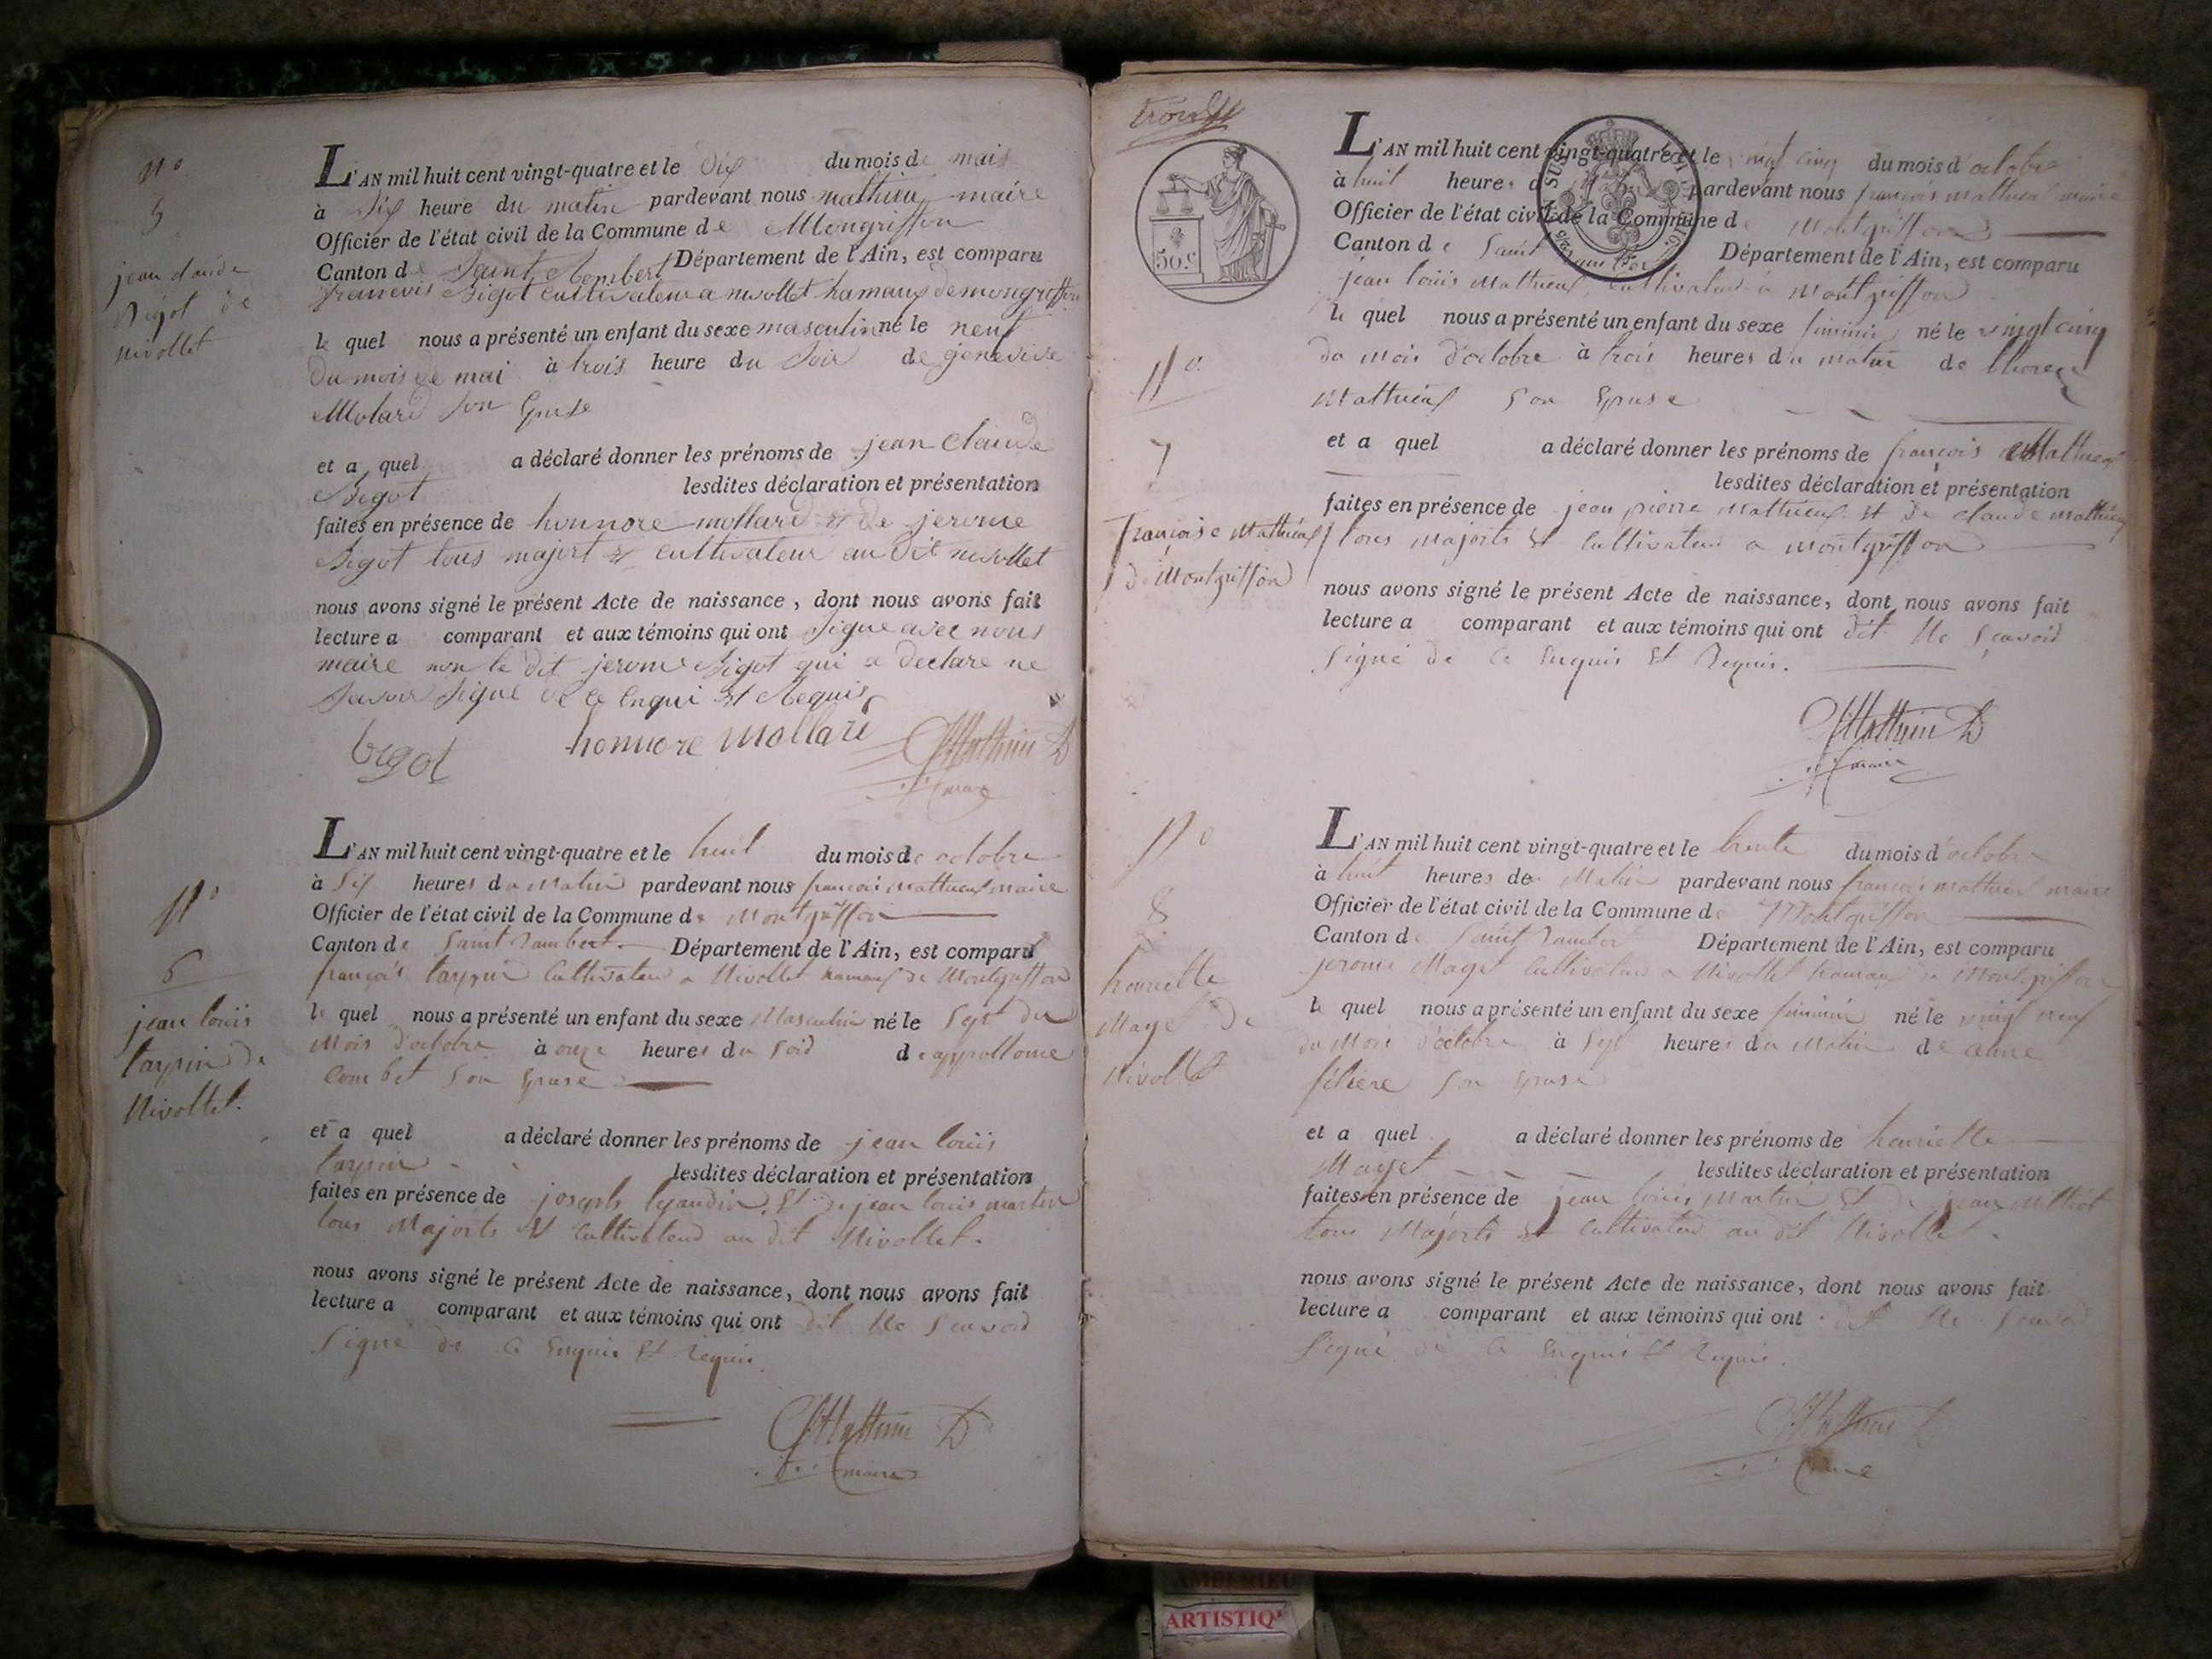 N°
5
jean claude
Bigot de
nivollet
L'AN mil huit cent vingt-quatre et le dix du mois de mais
à dix heure du matin pardevant nous mathieu maire
Officier de l'état civil de la Commune de Mongriffon
Canton de Saint Rembert Département de l'Ain, est comparu
francois Bigot cultivateur a nivollet hamaux de mongriffon
le quel nous a présenté un enfant du sexe masculin né le neuf
du mois de mai à trois heure du Soir de genevive
Molard Son Epuse
et a quel a déclaré donner les prénoms de jean claude
Bigot lesdites déclaration et présentation
faites en présence de honnore mollard et de jerome
Bigot tous majort et cultivateur au dit nivollet
nous avons signé le présent Acte de naissance, dont nous avons fait
lecture a comparant et aux témoins qui ont Signe avec nous
maire non le dit jerome Bigot qui a declare ne
Savoir Signe de ce Enqui et Requis
bigot honnore mollard Mathieu
maire
N°
6
jean louis
tarpin de
Nivollet.
L'AN mil huit cent vingt-quatre et le huit du mois de octobre
à Six heures du Matin pardevant nous francois mathieux maire
Officier de l'état civil de la Commune de Montgriffon
Canton de Saint Rambert Département de l'Ain, est comparu
françois tarpin Cultivateur a Nivollet hamaux de Montgriffon
le quel nous a présenté un enfant du sexe Masculin né le Sept du
Mois d'octobre à onze heures du Soir de appollonie
Combet Son Epuse
et a quel a déclaré donner les prénoms de jean louis
tarpin lesdites déclaration et présentation
faites en présence de joseph et de jean louis martin
tous Majorts et Cultivateur au dit Nivollet.
nous avons signé le présent Acte de naissance, dont nous avons fait
lecture a comparant et aux témoins qui ont dit Ne Scavoir
Signé de Ce Enquis Et Requis.
Mathieu
maire
trois
50.c
N°
7
françoise Mathieux
de Montgriffon
L'AN mil huit cent vingt-quatre et le vingt cinq du mois d'octobre
à huit heures pardevant nous françois mathieux maire
Officier de l'état civil de la Commune de Montgriffon
Canton de Saint Rambert Département de l'Ain, est comparu
jean louis Mathieux, Cultivateur à Montgriffon
le quel nous a présenté un enfant du sexe féminin né le vingt cinq
du Mois d'octobre à trois heures du matin de
Mathieux Son Epuse
et a quel a déclaré donner les prénoms de françois Mathieux
lesdites déclaration et présentation
faites en présence de jean pierre Mathieux et de claude Mathieux
tous Majorts et Cultivateur a Montgriffon
nous avons signé le présent Acte de naissance, dont nous avons fait
lecture a comparant et aux témoins qui ont dit Ne Scavoir
Signé de Ce Enquis Et Requis.
Mathieu
maire
N°
8
henriette
Mayet de
Nivollet
L'AN mil huit cent vingt-quatre et le trente du mois d'octobre
à huit heures de Matin pardevant nous françois mathieux maire
Officier de l'état civil de la Commune de Montgriffon
Canton de Saint Rambert Département de l'Ain, est comparu
jerome Mayet Cultivateur a Nivollet hamaux de Montgriffon
le quel nous a présenté un enfant du sexe féminin né le vingt neuf
du Mois d'octobre à Sept heures du Matin de anne
filiere Son Epuse
et a quel a déclaré donner les prénoms de henriette
Mayet lesdites déclaration et présentation
faites en présence de jean louis Martin et de jean
tous Majorts et Cultivateur au dit Nivollet.
nous avons signé le présent Acte de naissance, dont nous avons fait
lecture a comparant et aux témoins qui ont dit Ne Scavoir
Signé de Ce Enquis Et Requis.
Mathieu
maire
ARTISTIQ